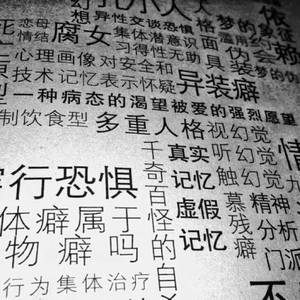 幻
小人
人格
依
想异性交谈恐惧
梦的象征
恋母
情结
腐女
集体潜意识
滥用
面具
伪会
赖
习得性无助
装
梦的伪
心理画像
对安全和
异装癖
技术
记忆
表示怀疑
一种病态的渴望被爱的强烈愿望
制饮食型
多重人格
视幻觉
千奇百怪的自
真实
记忆
虚假
记忆
听幻觉
触幻觉
情
行恐惧
慕残癖
精神
分析
门派
体癖属于
物癖吗
行为
集体
治疗
不